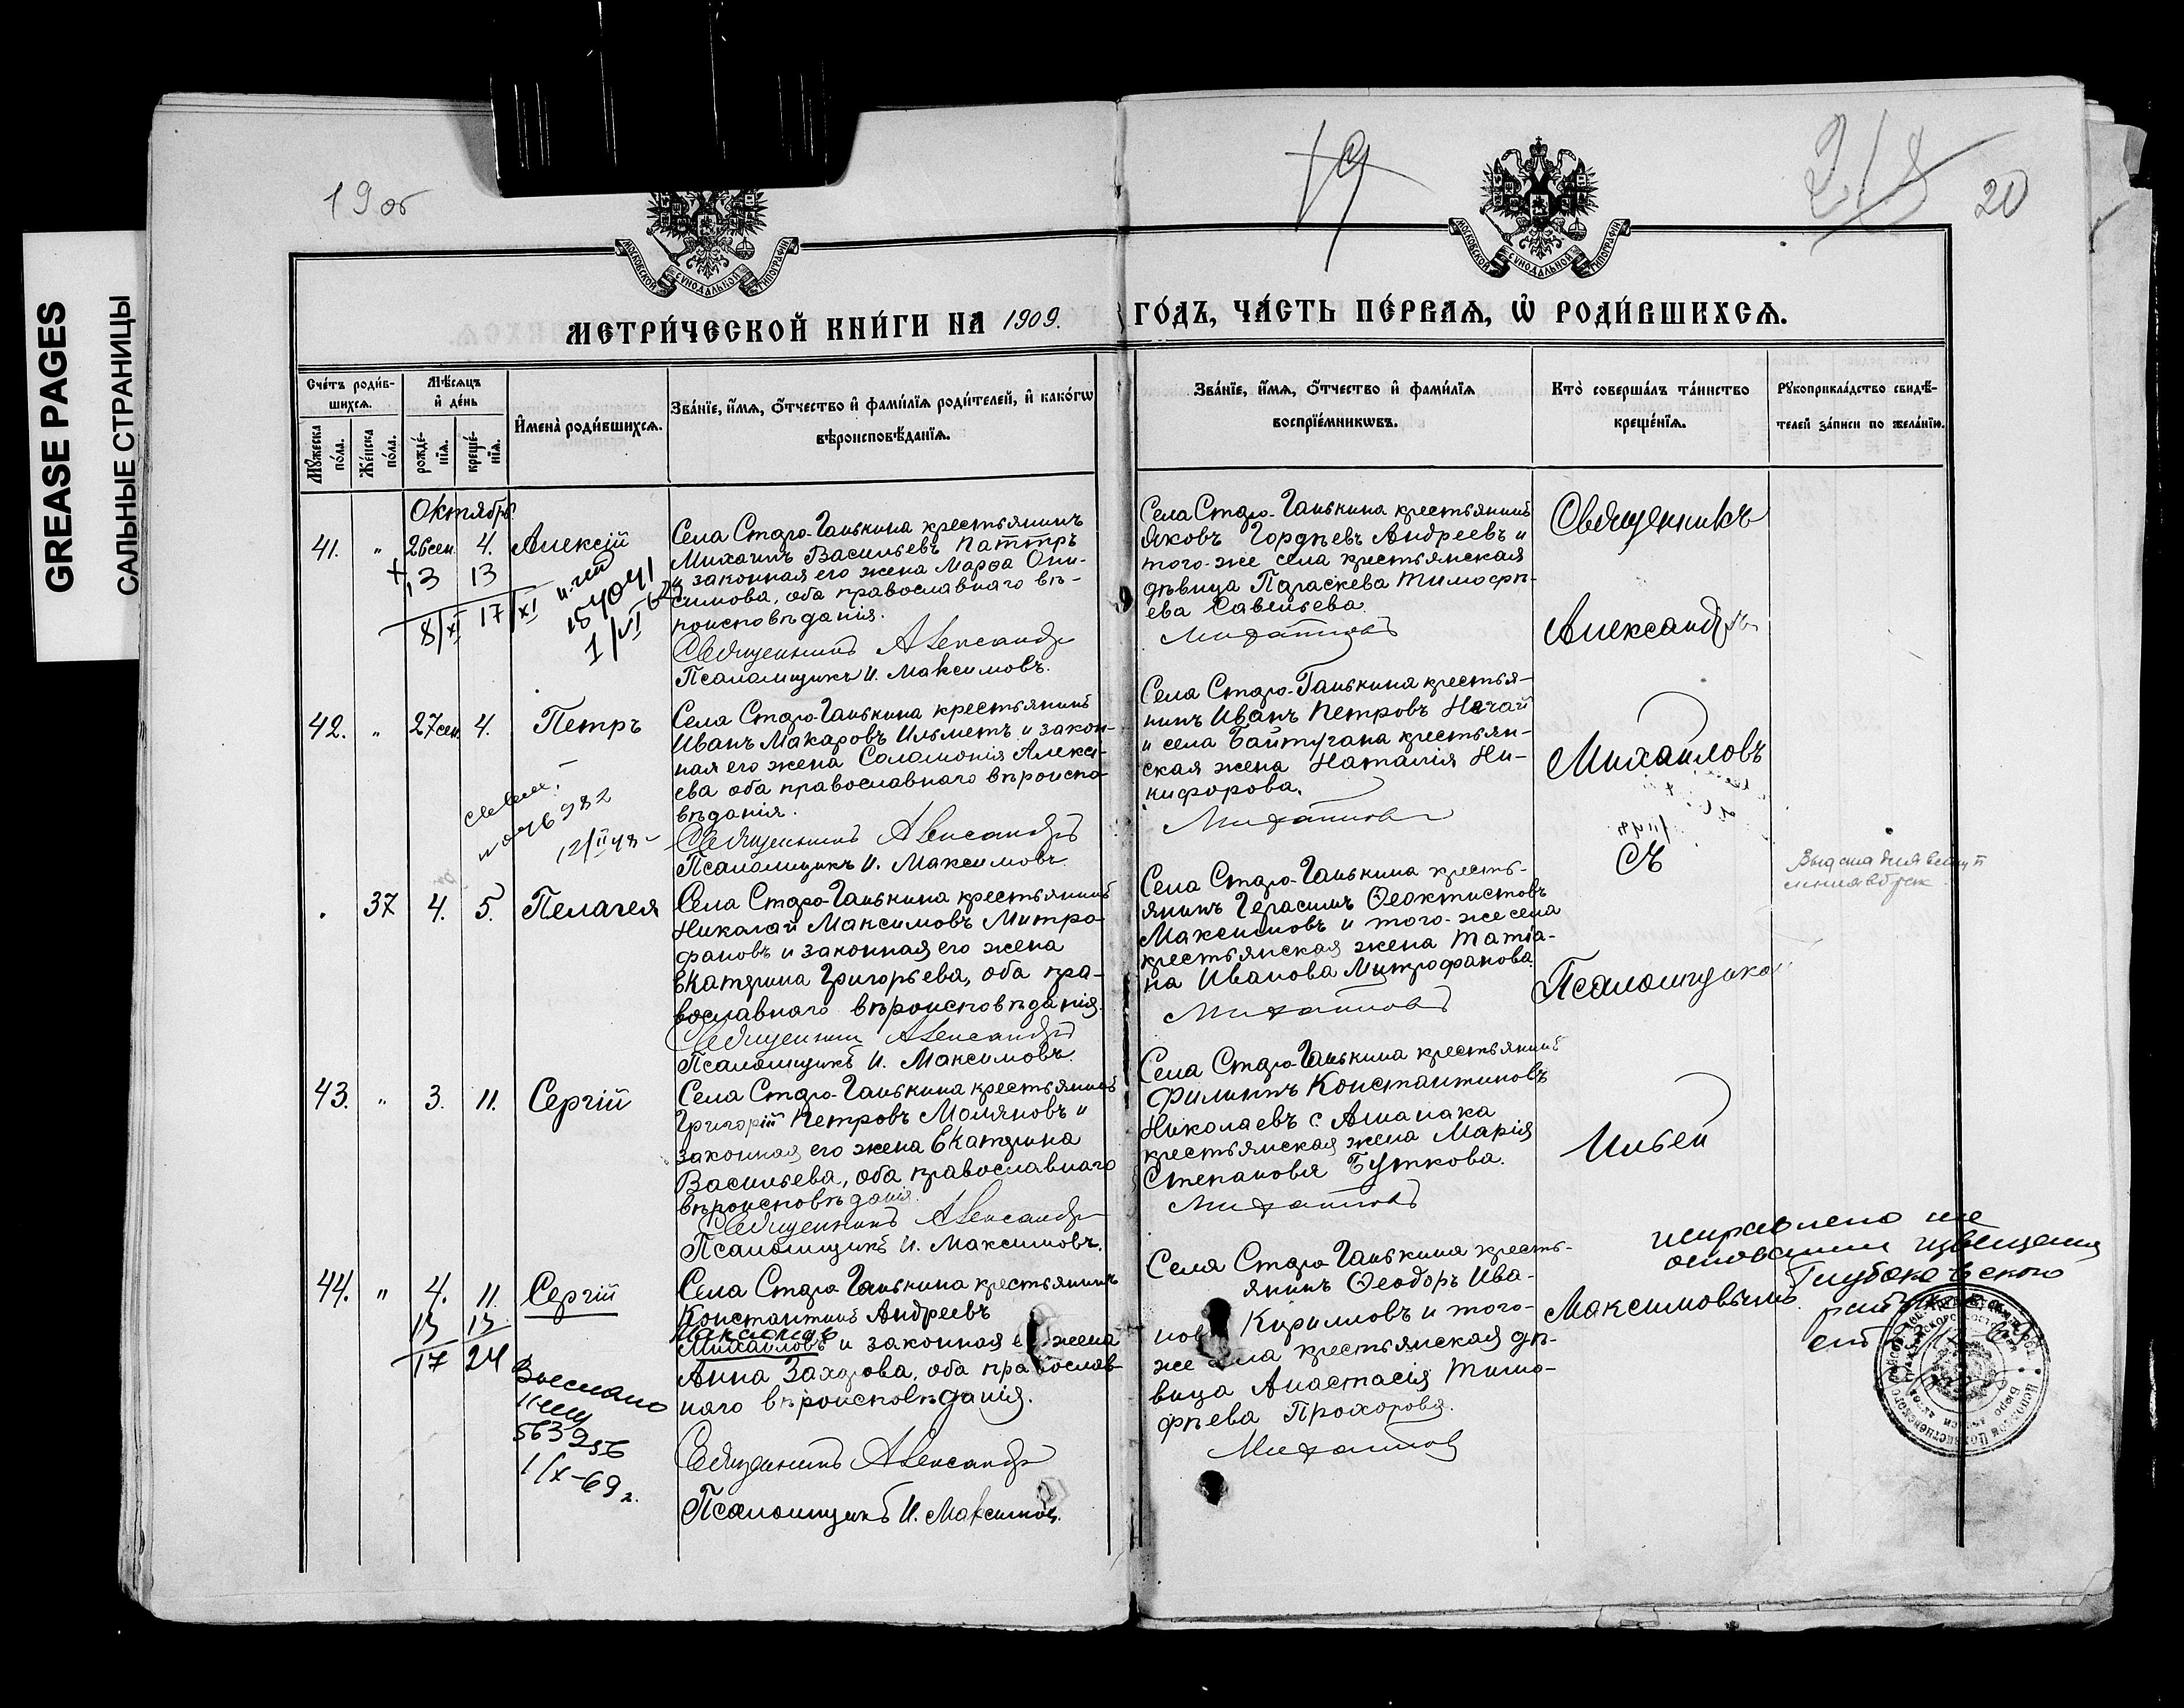 GREASE PAGES
САЛЬНЫЕ СТРАНИЦЫ
19 об
19
218
20
МОСКОВСКОЙ СѴНОДАЛЬНОЙ ТИПОГРАФІИ
МОСКОВСКОЙ СѴНОДАЛЬНОЙ ТИПОГРАФІИ
МЕТРИ́ЧЕСКОЙ КНИ́ГИ НА 1909.
ГО́ДЪ, ЧА́СТЬ ПЕ́РВАѦ, Ѡ҆ РОДИ́ВШИХСѦ.
Сче́тъ роди́в-
шихсѧ.
Мꙋ́жеска по́ла.
Же́нска по́ла.
Мѣ́сѧцъ
и҆ де́нь
рожде́-
нїѧ.
креще́-
нїѧ.
И҆мена̀ роди́вшихсѧ.
Зва́нїе, и҆́мѧ, ѻ҆́тчество и҆ фами́лїѧ роди́телей, и҆ како́гѡ
вѣроисповѣ́данїѧ.
Зва́нїе, и҆́мѧ, ѻ҆́тчество и҆ фами́лїѧ
воспрїе́мникѡвъ.
Кто̀ соверша́лъ та́инство
креще́нїѧ.
Рꙋкоприкла́дство свидѣ́-
телей за́писи по жела́нїю.
Октябрь
41. " 26 сен. 4. Алексій
13 13
8/XI 17/XI
1/VI
Села Старо-Ганькина крестьянинъ
Михаилъ Васильевъ Паттръ
и законная его жена Марѳа Они-
симова, оба православнаго вѣ-
роисповѣданія.
Священникъ Александръ
Псаломщикъ И. Максимовъ.
Села Старо-Ганькина крестьянинъ
Яковъ Гордѣевъ Андреевъ и
того-же села крестьянская
дѣвица Параскева Тимофѣ-
ева Савельева.
Михайловъ
42. " 27 сен. 4. Петръ
12/II 48
Села Старо-Ганькина крестьянинъ
Иванъ Макаровъ Ильметь и закон-
ная его жена Соломонія Алексѣ-
ева оба православнаго вѣроиспо-
вѣданія.
Священникъ Александръ
Псаломщикъ И. Максимовъ
Села Старо-Ганькина крестья-
нинъ Иванъ Петровъ Нечай
и села Байтугана крестьян-
ская жена Наталія Ни-
кифорова.
Михайловъ
. 37 4. 5. Пелагея
Села Старо-Ганькина крестьянинъ
Николай Максимовъ Митро-
фановъ и законная его жена
Екатерина Григорьева, оба пра-
вославнаго вѣроисповѣданія.
Священникъ Александръ
Псаломщикъ И. Максимовъ.
Села Старо-Ганькина кресть-
янинъ Герасимъ Ѳеоктистовъ
Максимовъ и того-же села
крестьянская жена Татіа-
на Иванова Митрофанова.
Михайловъ
43. " 3. 11. Сергій
Села Старо-Ганькина крестьянинъ
Григорій Петровъ Моляковъ и
законная его жена Екатерина
Васильева, оба православнаго
вѣроисповѣданія.
Священникъ Александръ
Псаломщикъ И. Максимовъ.
Села Старо-Ганькина крестьянинъ
Филиппъ Константиновъ
Николаевъ с Ашалака
крестьянская жена Марія
Степанова Буткова.
Михайловъ
44. " 4. 11. Сергій
13 13
17 24
Выслано
563256
1/X-69 г.
Села Старо Ганькина крестьянинъ
Константинъ Андреевъ
Михайловъ и законная е жена
Анна Захарова, оба православ-
наго вѣроисповѣданія.
Священникъ Александръ
Псаломщикъ И. Максимовъ.
Села Старо Ганькина кресть-
янинъ Ѳеодоръ Ива-
нов Кириловъ и того-
же села крестьянская дѣ-
вица Анастасія Тимо-
фѣева Прохорова.
Михайловъ
Священникъ
Александръ
Михайловъ
съ
Псаломщико
Ильей
Максимовымъ.
исправлено на
основании извещения
Глубоковского